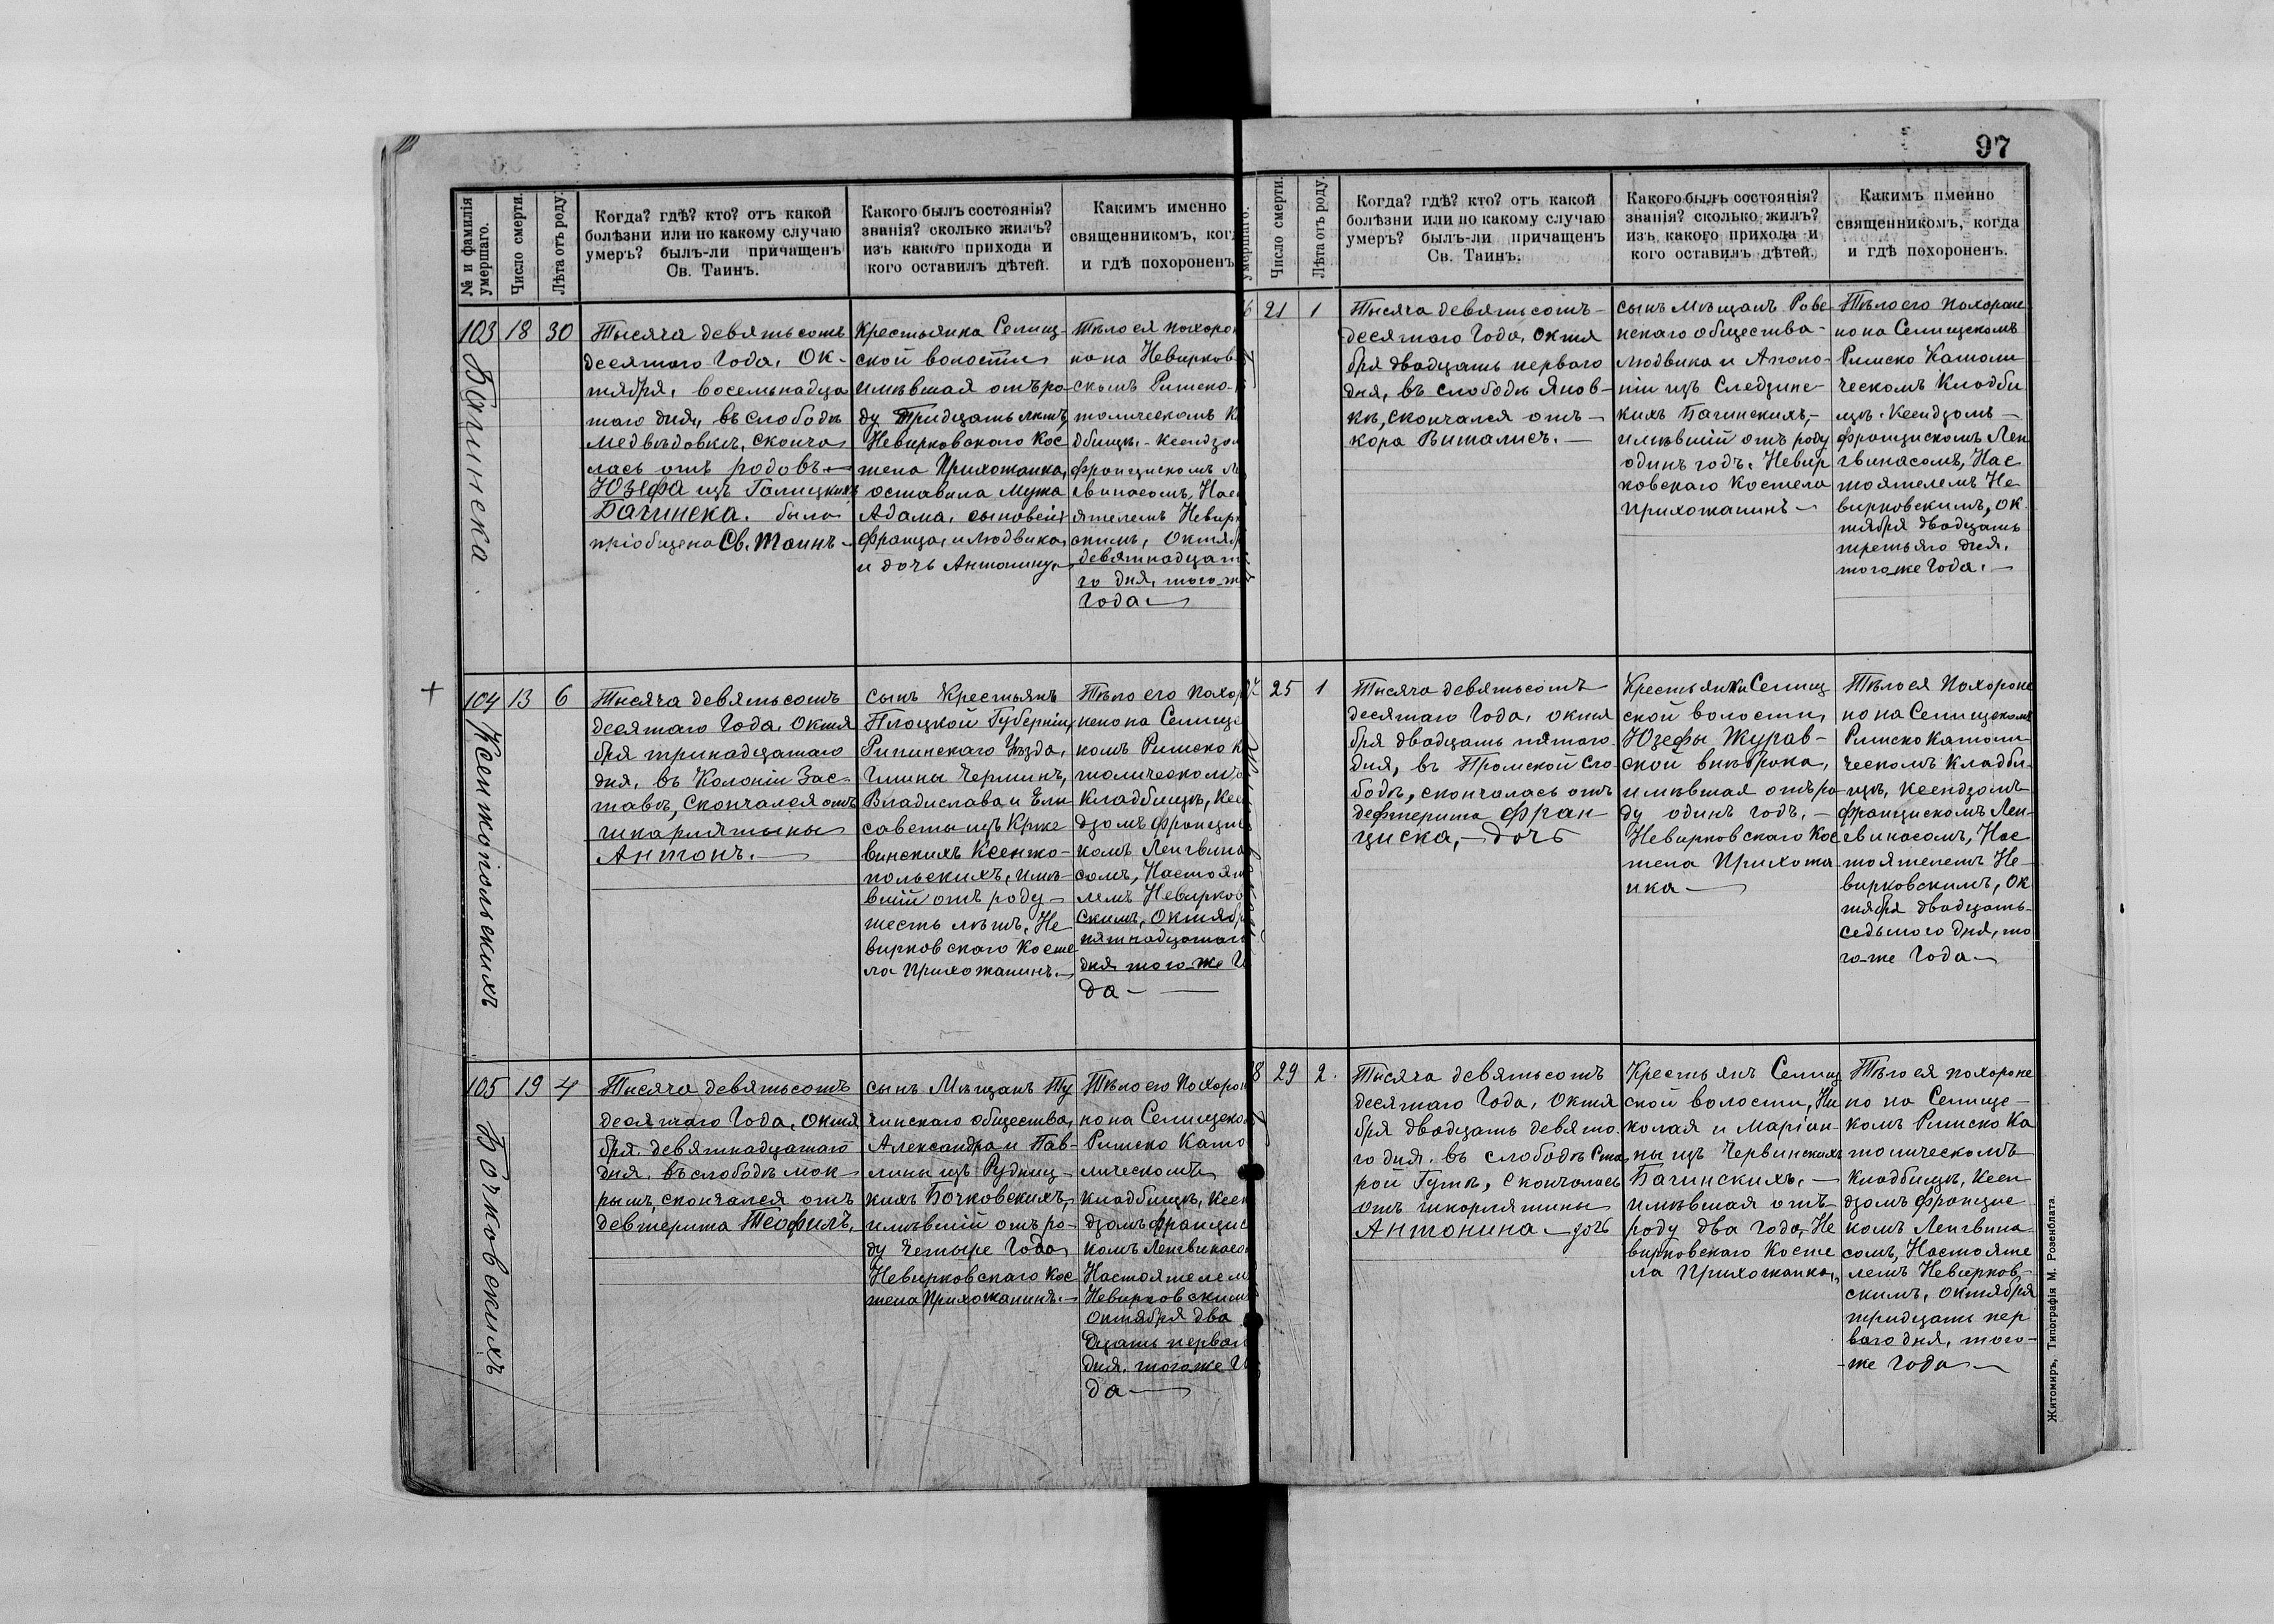 97
№ и фамилія умершаго.
Число смерти.
Лѣта отъ роду.
Когда? гдѣ? кто? отъ какой
болѣзни или по какому случаю
умеръ? былъ-ли причащенъ
Св. Таинъ.
Какого былъ состоянія?
званія? сколько жилъ?
изъ какого прихода и
кого оставилъ дѣтей.
Какимъ именно
священникомъ, ког
и гдѣ похороненъ
103
Багинска.
18
30
Тысяча девятьсотъ
десятаго Года, Ок-
тября, восемьнадца
таго дня, въ слободѣ
Медвѣдовкѣ, сконча
лась отъ родовъ —
Юзефа изъ Галицкихъ
Багинска. была
пріобщена Св. Таинъ —
Крестьянка Селищ-
ской волости
имѣвшая отъ ро-
ду Тридцать лѣтъ,
Невирковского Кос
тела Прихожанка,
оставила Мужа
Адама, сыновей:
Франца, и Людвика,
и дочь Антонину. —
Тѣло ея похоро
но на Невирков
скомъ Римско-
толическомъ К
дбищѣ. - Ксендзо
Францискомъ Ле
гвинасомъ, Нас
ятелемъ Невирк
скимъ, Октяб
девятнадцат
го дня, того ж
Года —
104
Ксентопольскихъ
13
6
Тысяча девятьсотъ
десятаго Года, Октя
бря тринадцатаго
дня, въ Колоніи Зас-
тавѣ, Скончался отъ
шкарлятыны
Антонъ. —
сынъ Крестьянъ
Плоцкой Губерніи,
Рипинскаго Уѣзда,
Гмины Черминъ,
Владислава и Ели
саветы изъ Крже
винскихъ Ксенто-
польскихъ, имѣ-
вшій отъ роду —
шесть лѣтъ, Не
вирковскаго Косте
ла Прихожанинъ. —
Тѣло его похор
нено на Селище
комъ Римско К
толическомъ
Кладбищѣ, Ксе
дзомъ Францис
комъ Ленгвина
сомъ, Настоят
лемъ Невирков
скимъ, Октябр
пятнадцатаго
дня того-же Го
да —
105
Бочковскихъ
19
4
Тысяча девятьсотъ
десятаго Года, Октя
бря девятнадцатаго
дня, въ слободѣ мок
рымъ, скончался отъ
девтерита Теофилъ,
сынъ Мѣщанъ Ту
чинскаго общества,
Александра и Пав-
лины изъ Рудниц-
кихъ Бочковскихъ,
имѣвшій отъ ро-
ду Четыре Года,
Невирковскаго Кос
тела Прихожанинъ. —
Тѣло его Похоро
но на Селищеко
Римско Като
лическомъ
Кладбищѣ, Ксен
дзомъ Францис
комъ Ленгвинасо
Настоятелем
Невирковским
Октября два
дцать перваго
дня, того же Го
да —
умершаго.
Число смерти.
Лѣта отъ роду.
Когда? гдѣ? кто? отъ какой
болѣзни или по какому случаю
умеръ? былъ-ли причащенъ
Св. Таинъ.
Какого былъ состоянія?
званія? сколько жилъ?
изъ какого прихода и
кого оставилъ дѣтей.
Какимъ именно
священникомъ, когда
и гдѣ похороненъ.
6
21
1
Тысяча девятьсотъ —
десятаго Года, Октя
бря двадцать перваго
дня, въ слободѣ Янов-
кѣ, скончался отъ —
кора Виталисъ. —
сынъ Мѣщанъ Рове
нскаго общества —
Людвика и Аполо-
ніи изъ Следзине-
кихъ Багинскихъ, —
имѣвшій отъ роду
одинъ годъ. Невир
ковскаго Костела
Прихожанинъ —
Тѣло его похороне
но на Селищскомъ
Римско Католи
ческомъ Кладби
щѣ. Ксендзомъ —
Францискомъ Лен
гвинасомъ, Нас
тоятелемъ Не
вирковскимъ, Ок
тября двадцать
третьяго дня,
того же Года. —
7
25
1
Тысяча девятьсотъ
десятаго Года, октя
бря двадцать пятого
дня, въ Промской сло
бодѣ, скончалась отъ
дефтерита Фран-
циска, — дочь
Крестьянки Селищ
ской волости,
Юзефы Журав-
ской внѣбрака,
имѣвшая отъ ро
ду одинъ годъ, —
Невирковскаго Кос
тела Прихожа
нка —
Тѣло ея Похороне
но на Селищскомъ
Римско Католи
ческомъ Кладби-
щѣ, Ксендзомъ
Францискомъ Лен-
гвинасомъ, Нас
тоятелемъ Не-
вирковскимъ, Ок
тября двадцать-
седьмого дня, то
го-же Года —
8
29
2.
Тысяча девятьсотъ
десятаго Года, Октя
бря двадцать девято
го дня. въ слободѣ Ста
рой Гутѣ, Скончалась
отъ шкорлятины
Антонина — дочь
Крестьянъ Селищ
ской волости, Ни
колая и Маріан-
ны изъ Червинскихъ
Багинскихъ, —
имѣвшая отъ
роду два года, Не
вирковскаго Косте
ла Прихожанка,
Тѣло ея похороне
но на Селище-
комъ Римско Ка
толическомъ
Кладбищѣ, Ксен
дзомъ Францис
комъ Ленгвина
сомъ, Настояте
лемъ Невирков-
скимъ, октября
тридцать пер
ваго дня, того-
же Года —
Житомиръ, Типографія М. Розенблата.